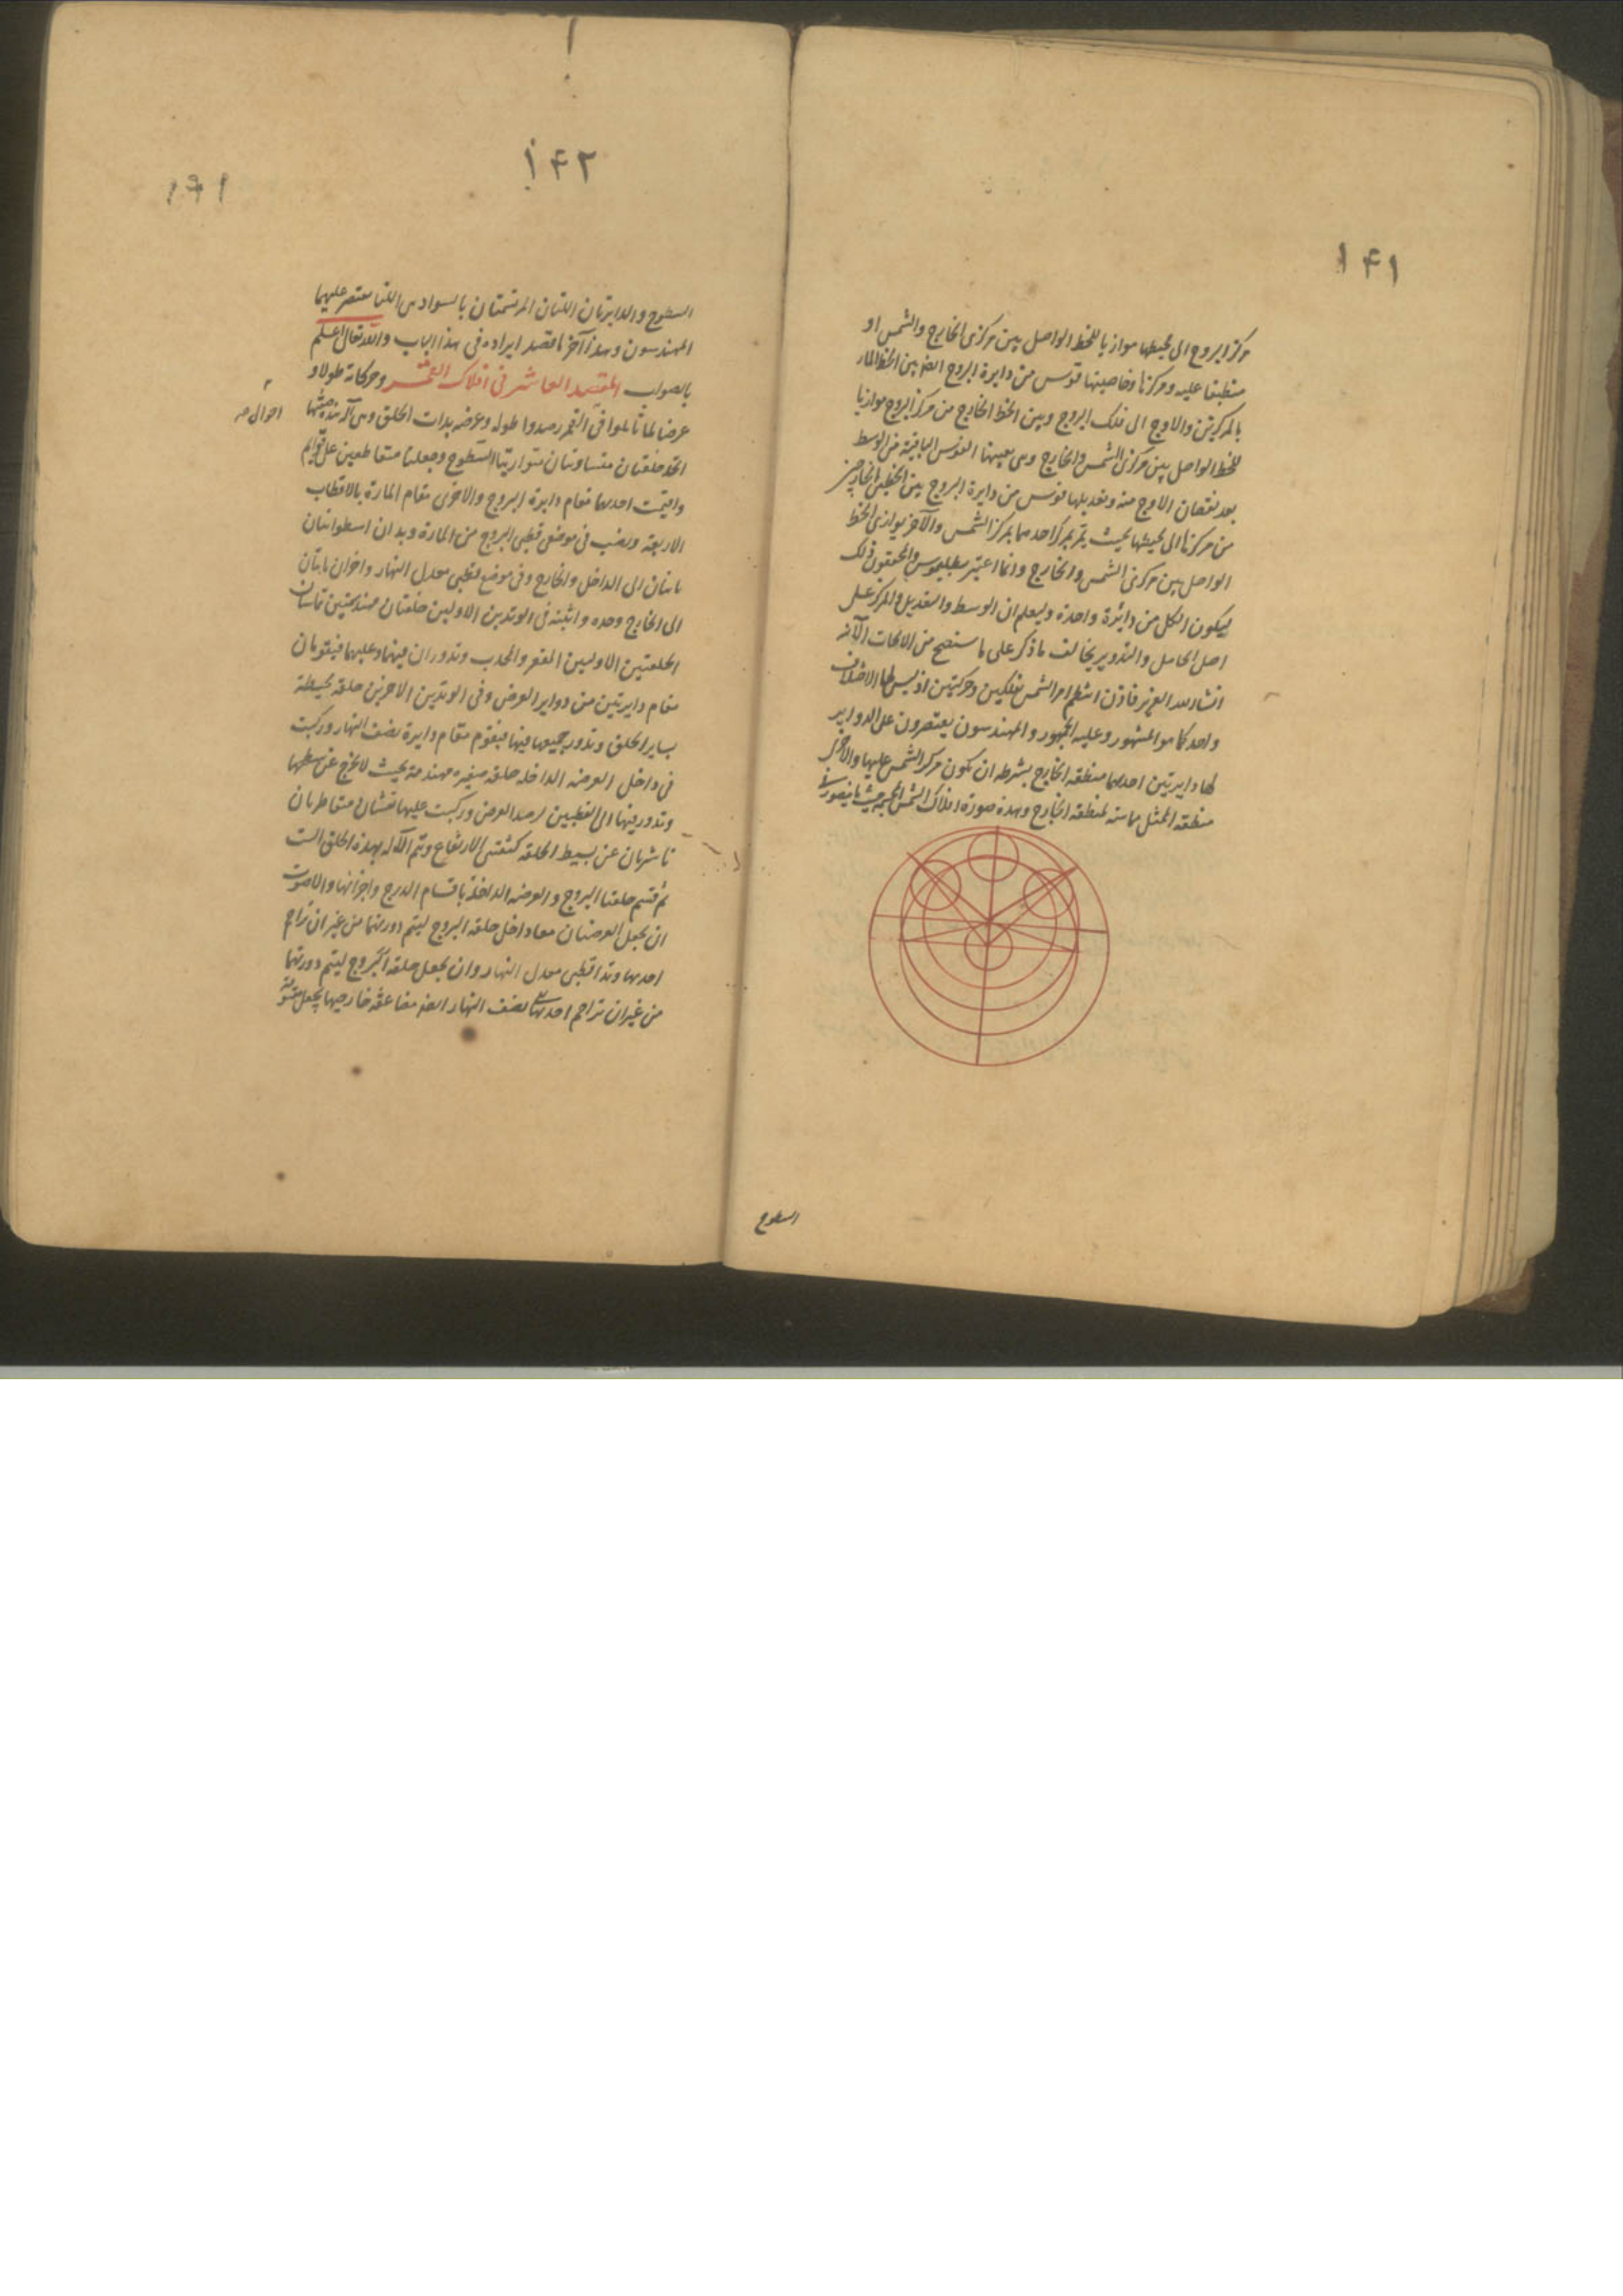 ١٤١
مركز البروج الى محيطها موازيا للخط الواصل بين مركزى الخارج والشمس او
منطبقا عليه ومركزها وخاصيتها قوس من دايرة البروج ايضا بين الخط المار
بالمركزين والاوج الى فلك البروج وبين الخط الخارج من مركز البروج موازيا
للخط الواصل بين مركزى الشمس والخارج وهى بعينها القوس الباقية من الوسط
بعد نقصان الاوج منه وتعديلها قوس من دايرة البروج بين الخطين الخارجين
من مركزها الى محيطها بحيث يمر احدهما بمركز الشمس والآخر يوازى الخط
الواصل بين مركزى الشمس والخارج وانما اعتبر بطلميوس والمحققون ذلك
ليكون الكل من دايرة واحدة وليعلم ان الوسط والتعديل والمركز على
اصل الحامل والتدوير يخالف ما ذكر على ما ستضح من الابحاث الآتية
انشاء الله العزيز فاذن انتظم امر الشمس بفلكين وحركتين اذ ليس لها الا اختلاف
واحد كما هو المشهور وعليه الجمهور والمهندسون يقتصرون على الدواير
لها دايرتين احدهما منطقة الخارج بشرطه ان يكون مركز الشمس عليها والاخرى
منطقة الممثل مماسته لمنطقة الخارج وهذه صورة افلاك الشمس المجسمة حيث ما يتصور فى
السطوح
١٤٢
١٤١
السطوح والدايرتان اللتان المرتسمتان بالسواد هى اللتا يقتصر عليهما
المهندسون وهذا آخر ما قصد ايراده فى هذا الباب والله تعالى اعلم
بالصواب المقصد العاشر فى افلاك القمر وحركاته طولا و
عرضا لما تاملوا فى القمر رصدوا طوله وعرضه بذات الحلق وهى آلة هذه صفتها
احوال صه
اتخذ حلقتان متساويتان متوازيتا السطوح وجعلتا متقاطعين على قوايم
واقيمت احدهما مقام دايرة البروج والاخرى مقام المارة بالاقطاب
الاربعة ونصب فى موضعى قطبى البروج من المارة وبدان اسطوانيان
ناتيان الى الداخل والخارج وفى موضع قطبى معدل النهار واخران ناتيان
الى الخارج وحده واثبته فى الوتدين الاولين حلقتان مهندمتين تماسان
الحلقتين الاوليين المقعر والمحدب وتدوران فيهما وعليهما فيقومان
مقام دايرتين من دواير العرض وفى الوتدين الاخرين حلقة محيطة
بساير الحلق وتدور جميعها فيها فيقوم مقام دايرة نصف النهار وركبت
فى داخل العرضه الداخله حلقه صغيره مهندمة بحيث لا تخرج عن سطحها
وتدور فيها الى القطبين لرصد العرض وركبت عليها نقشان متقاطران
ناشزتان عن بسيط الحلقة كثقبتى الارتفاع وتم الآلة بهذه الحلق الست
ثم قسم حلقتا البروج والعرضه الداخلة باقسام الدرج واجزائها والاصوب
ان يجعل العرضتان معا داخل حلقة البروج ليتم دورتهما من غير ان تزاحم
احديهما وتدا قطبى معدل النهار وان يجعل حلقة البروج ليتم دورتهما
من غير ان تزاحم احديهما نصف النهار ايضا خارجيها يجعل